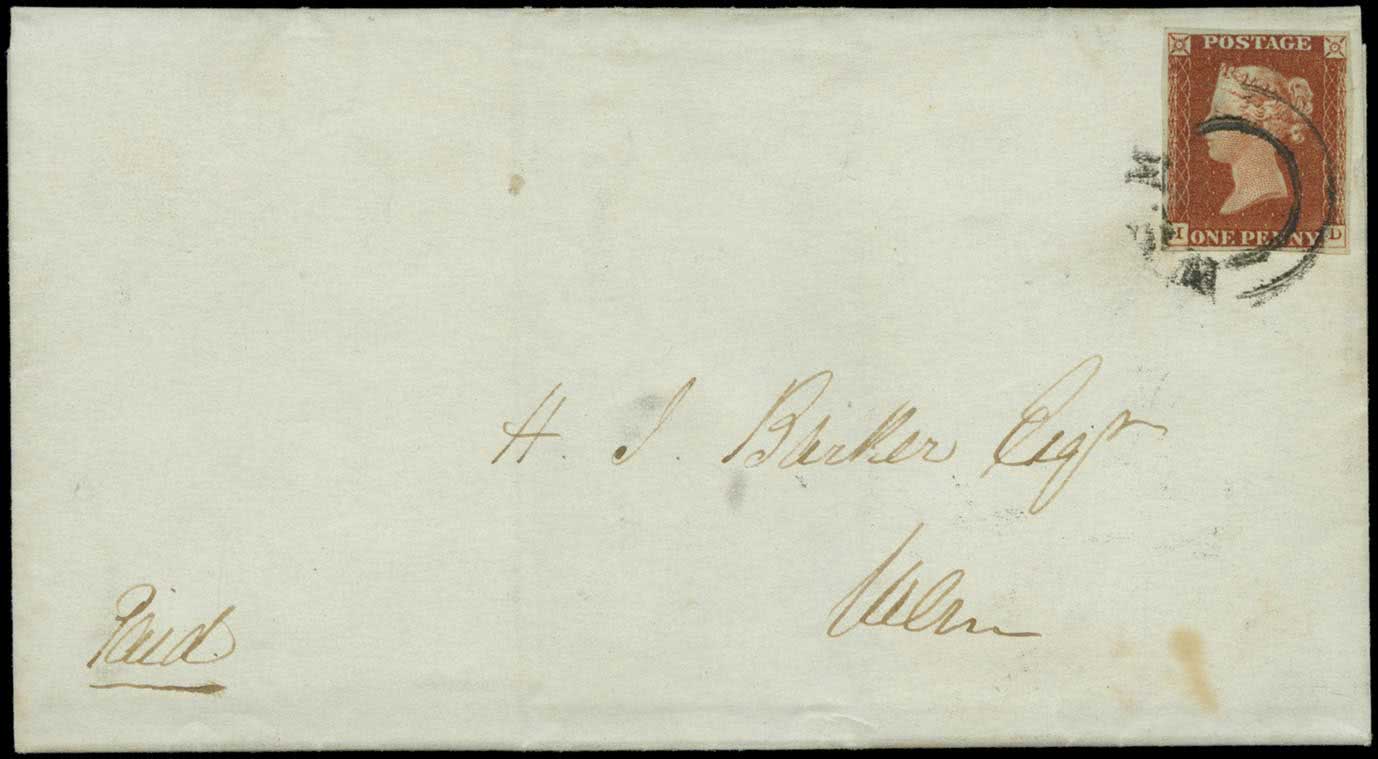 POSTAGE
M D
ONE PENNY
H. J. Barker Esqr
Wem
Paid